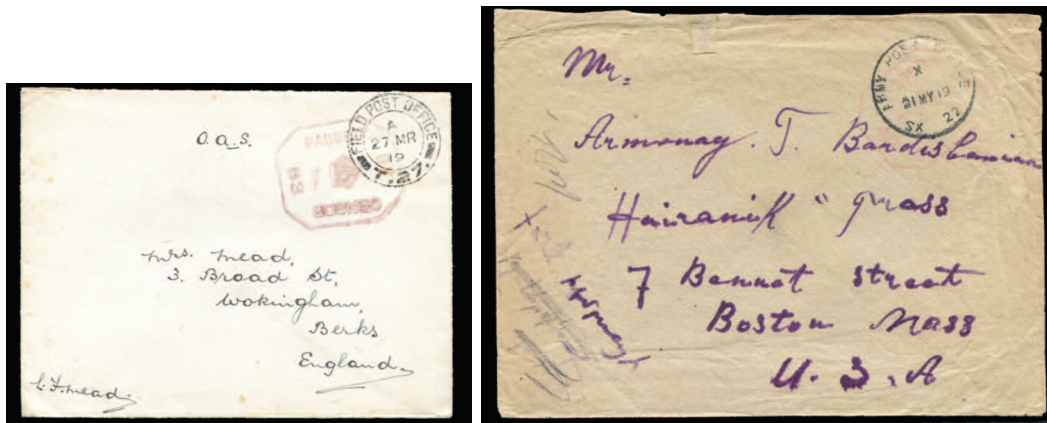 O.A.S.
FIELD POST OFFICE
A
27 MR
19
T.27.
PASSED
63
CENSOR
Mrs. Mead,
3. Broad St,
Wokingham,
Berks
England.
Mead.
Mr.
ARMY POST OFFICE
X
21 MY 19
SX 22
Armenag. T.
Hairanik " Press
7 Bennet street
Boston Mass
U.S.A